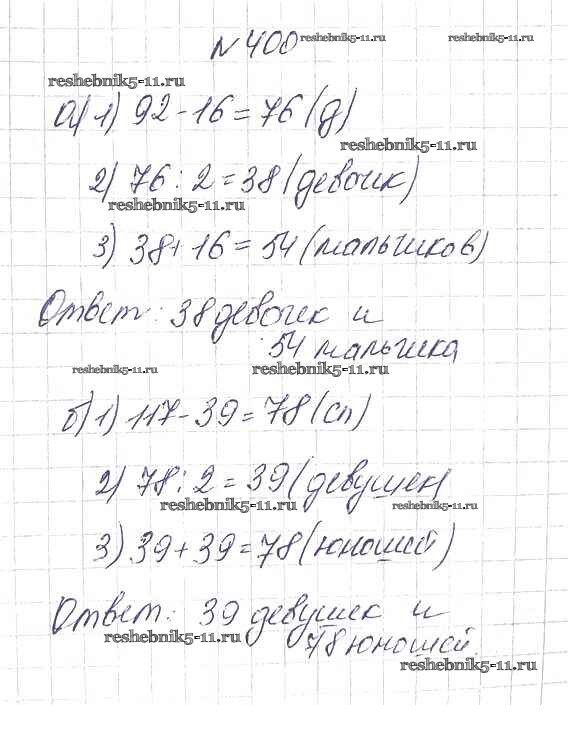 № 400
reshebnik5-11.ru reshebnik5-11.ru
reshebnik5-11.ru
а) 1) 92 - 16 = 76 (д)
reshebnik5-11.ru
2) 76 : 2 = 38 (девочек)
reshebnik5-11.ru
3) 38 + 16 = 54 (мальчиков)
Ответ: 38 девочек и
54 мальчика
reshebnik5-11.ru reshebnik5-11.ru
б) 1) 117 - 39 = 78 (сп)
2) 78 : 2 = 39 (девушек)
reshebnik5-11.ru reshebnik5-11.ru
3) 39 + 39 = 78 (юношей)
Ответ: 39 девушек и
reshebnik5-11.ru
78 юношей.
reshebnik5-11.ru